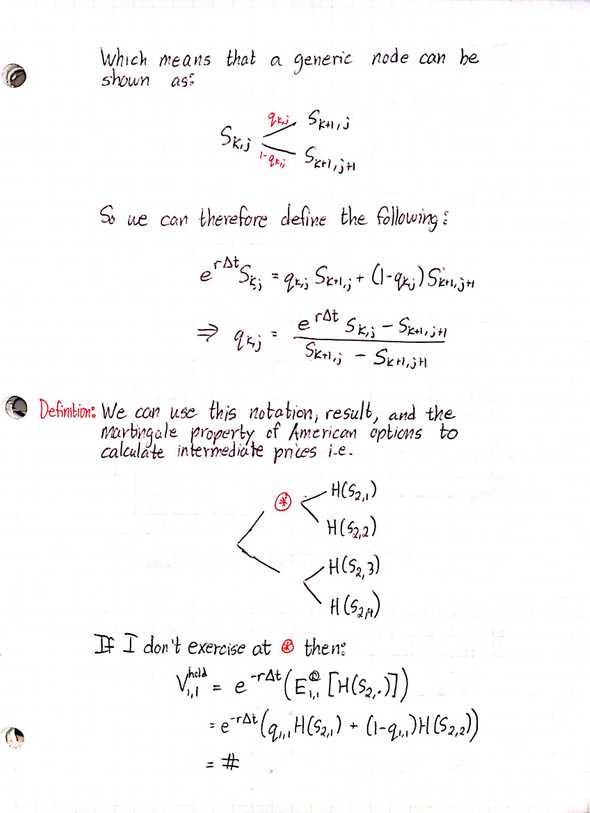 Which means that a generic node can be
shown as:
q_{k,j} S_{k+1,j}
S_{k,j}
1-q_{k,j} S_{k+1,j+1}
So we can therefore define the following:
e^{rΔt} S_{k,j} = q_{k,j} S_{k+1,j} + (1-q_{k,j}) S_{k+1,j+1}
⇒ q_{k,j} = (e^{rΔt} S_{k,j} - S_{k+1,j+1}) / (S_{k+1,j} - S_{k+1,j+1})
Definition: We can use this notation, result, and the
martingale property of American options to
calculate intermediate prices i.e.
H(S_{2,1})
⊛
H(S_{2,2})
H(S_{2,3})
H(S_{2,4})
If I don't exercise at ⊛ then:
V_{1,1}^{hold} = e^{-rΔt} (E_{1,1}^{Q} [H(S_{2,·})])
= e^{-rΔt} (q_{1,1} H(S_{2,1}) + (1-q_{1,1}) H(S_{2,2}))
= #